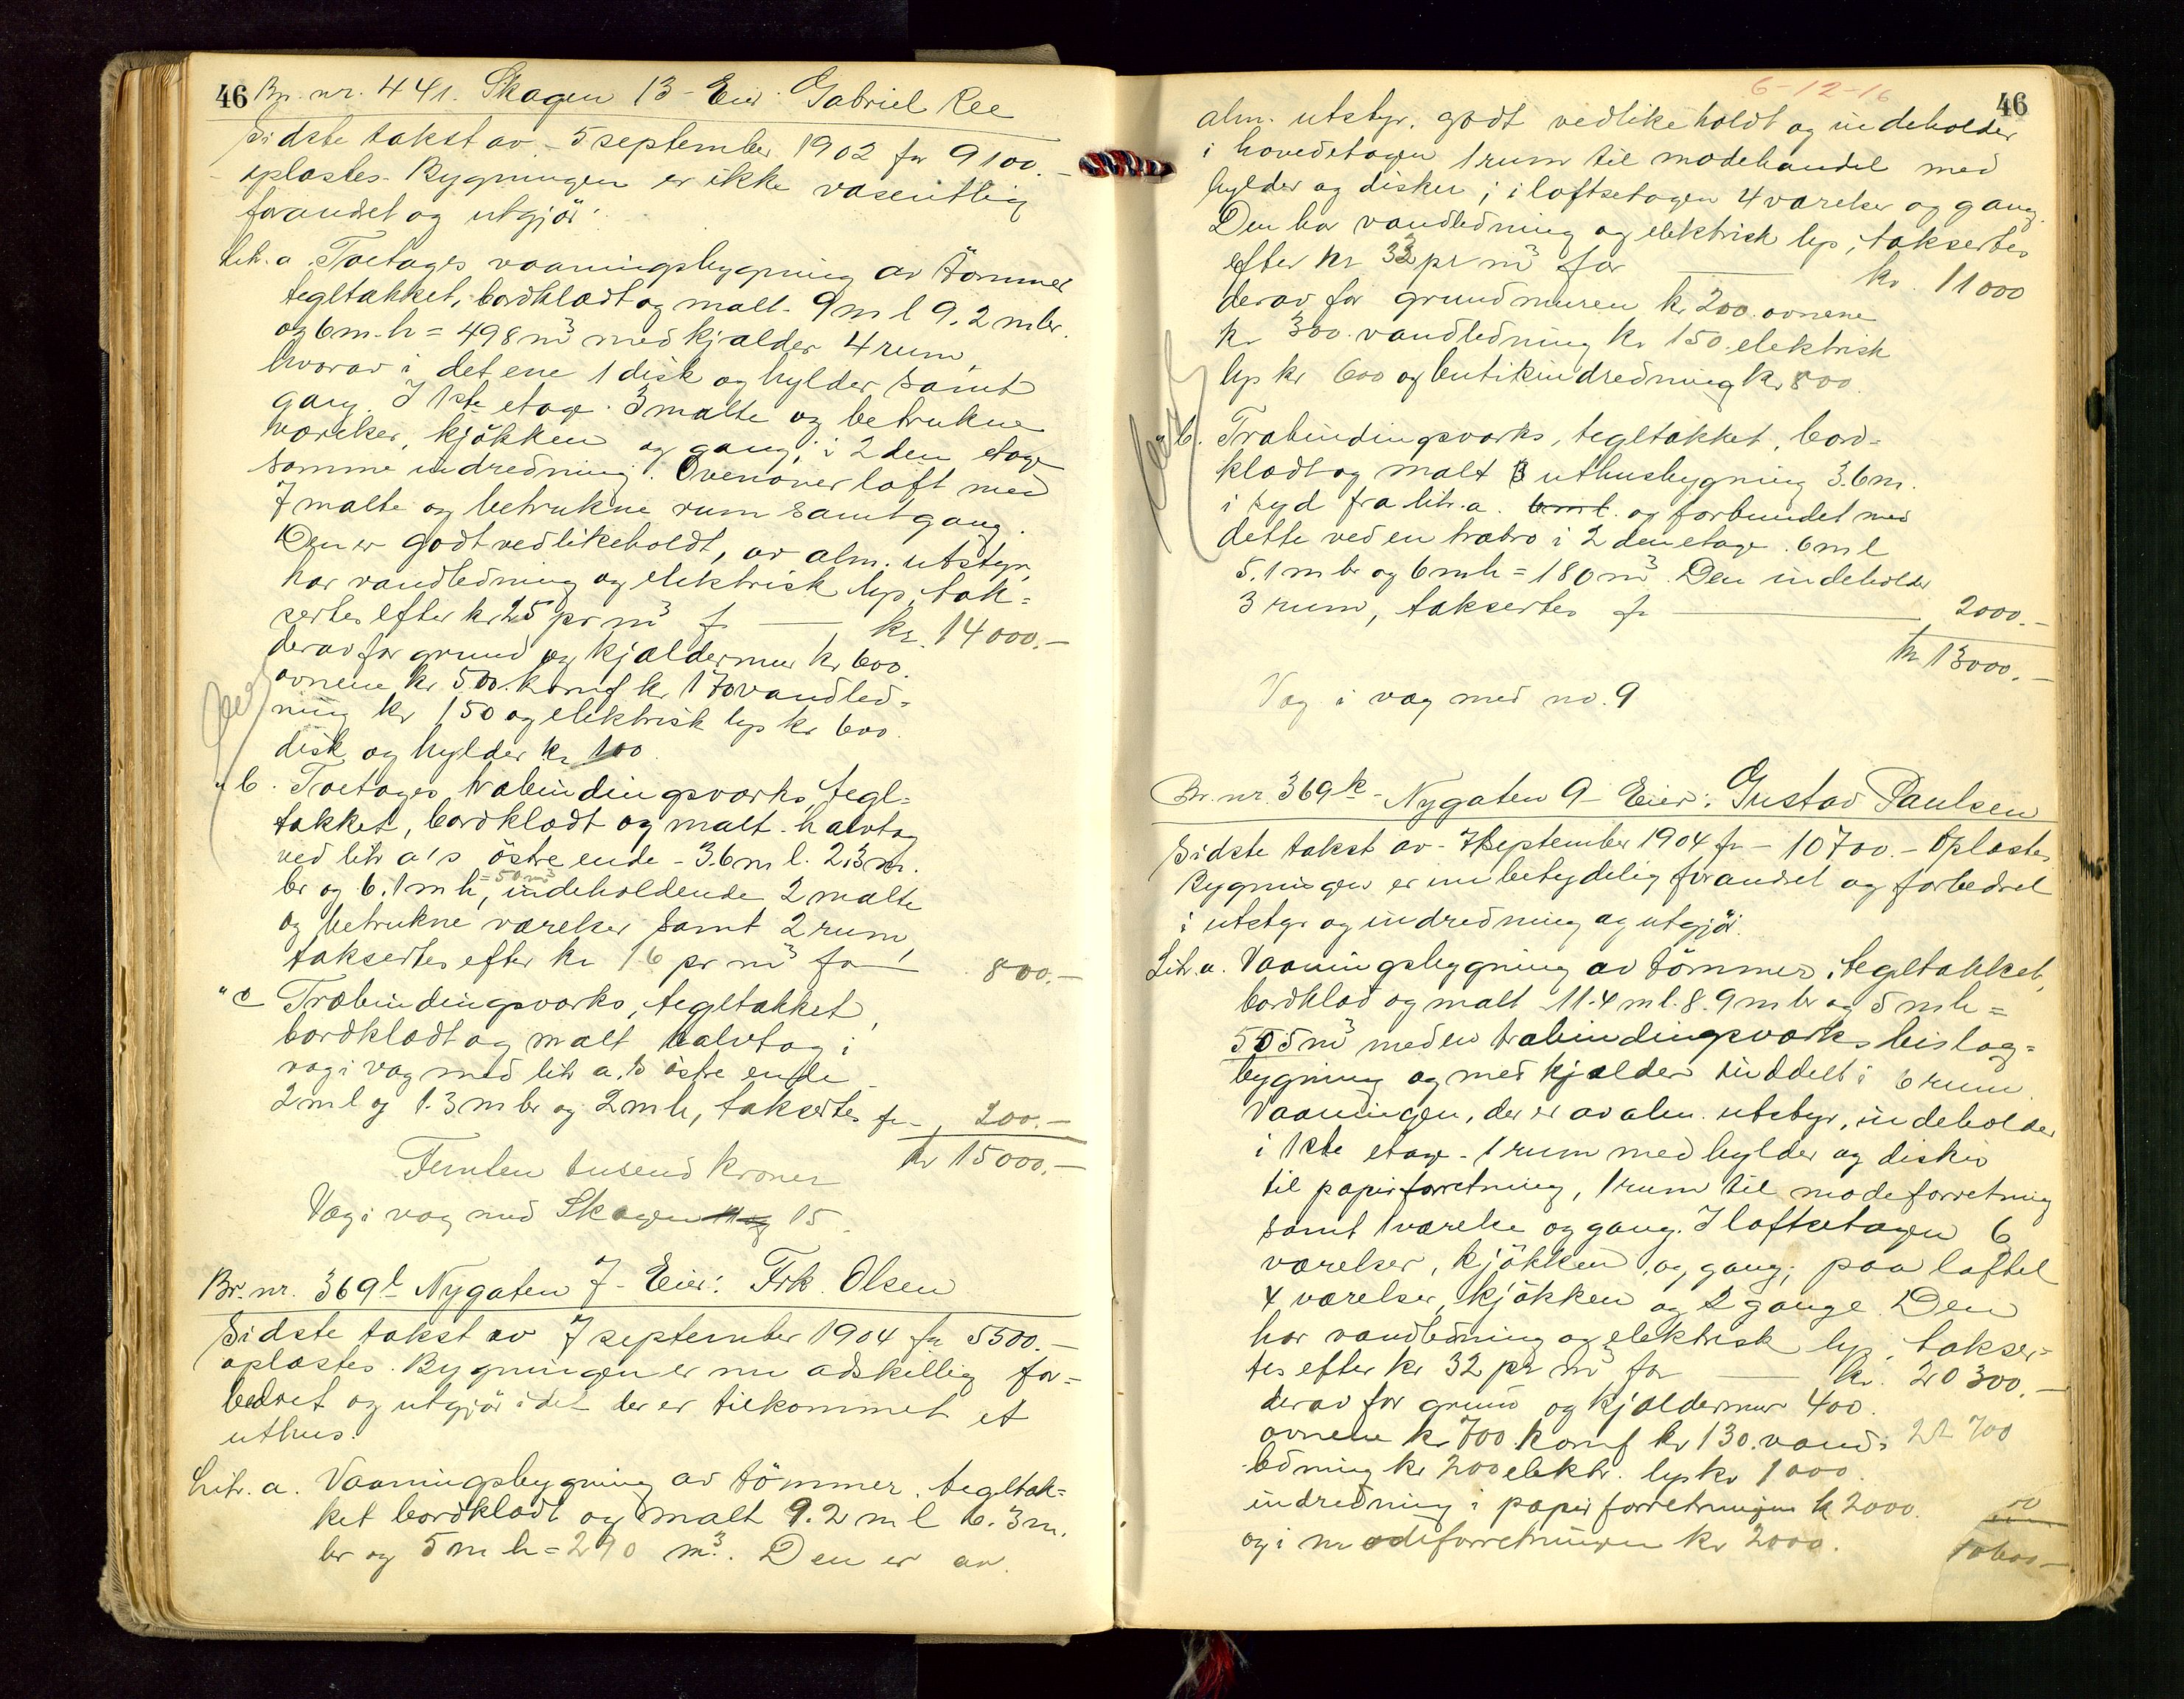 46 Br. nr. 441. Skagen 13 - Eier Gabriel Ree
Sidste takst av - 5 september 1902 for 9100.-
oplæstes. Bygningen er ikke væsentlig
forandret og utgjör:
Litr. a. Toetages vaaningsbygning av tömmer
tegltækket, bordklædt og malt. 9 m l 9.2 m br.
og 6 m. h = 498 m³ med kjælder 4 rum
hvorav i det ene 1 disk og hylder samt
gang. I 1ste etage. 3 malte og betrukne
værelser, kjökken og gang; i 2den etage
samme indredning. Ovenover loft med
7 malte og betrukne rum samt gang.
Den er godt vedlikeholdt, av alm. utstyr,
har vandledning og elektrisk lys, tak=
sertes efter kr 25 pr m³ fr — kr. 14000.-
derav for grund og kjældermur kr 600.
ovnene kr 500. komf kr 170 vandled=
ning kr 150 og elektrisk lys kr 600.
disk og hylder kr 100.
" b. Toetages træbindingsværks, tegl=
tækket, bordklædt og malt. halvtag
ved litr a's östre ende - 3.6 m l. 2.3 m.
br og 6.1 m h, =50 m³ indeholdende 2 malte
og betrukne værelser samt 2 rum,
taksertes efter kr 16 pr m³ for — 800.-
" c Træbindingsværks, tegltækket,
bordklædt og malt halvtag i
væg i væg med litr a.s östre ende
2 m l og 1.3 m br og 2 m h, taksertes fr - 200.-
Femten tusend kroner kr 15000.-
Væg i væg med Skagen 15.
Br. nr. 369 l Nygaten 7 - Eier: Frk. Olsen
Sidste takst av 7 september 1904 fr 5500.-
oplæstes. Bygningen er nu adskillig for=
bedret og utgjör idet der er tilkommet et
uthus:
Litr. a. Vaaningsbygning av tömmer. tegltæk=
ket bordklædt og malt 9.2 m l 6.3 m.
br og 5 m h = 290 m³. Den er av
6-12-16
46
alm. utstyr, godt vedlikeholdt og indeholder
i hovedetagen 1 rum til modehandel med
hylder og disker; i loftsetagen 4 værelser og gang.
Den har vandledning og elektrisk lys; taksertes
efter kr 33 pr m³ for — kr. 11000
derav for grundmuren kr 200. ovnene
kr 300. vandledning kr 150. elektrisk
lys kr 600 og butikindredning kr 800.
" b. Træbindingsværks, tegltækket, bord=
klædt og malt uthusbygning 3.6 m.
i syd fra litr. a. 6 m l. og forbundet med
dette ved en træbro i 2den etage. 6 m l
5.1 m br og 6 m h = 180 m³. Den indeholder
3 rum, taksertes fr — 2000.-
kr 13000.-
Væg i væg med no. 9
Br. nr. 369 k - Nygaten 9 - Eier: Gustav Paulsen
Sidste takst av - 7 September 1904 fr - 10700.- Oplæstes
Bygningen er nu betydelig forandret og forbedret
i utstyr og indredning og utgjör:
Litr. a. Vaaningsbygning av tömmer, tegltækket,
bordklæd og malt 11.4 m l. 8.9 m br og 5 m h =
505 m³ med en træbindingsværks bislag=
bygning og med kjælder inddelt i 6 rum.
Vaaningen, der er av alm. utstyr, indeholder
i 1ste etage - 1 rum med hylder og disker
til papirforretning, 1 rum til modeforretning
samt 1 værelse og gang. I loftsetagen 6
værelser, kjökken og gang; paa loftet
4 værelser, kjökken og 2 gange. Den
har vandledning og elektrisk lys; takser=
tes efter kr 32 pr m³ for — kr. 20300.-
derav for grund og kjældermur 400.
ovnene kr 700. komf kr 130. vand=
ledning kr 200 elektr. lys kr 1000.
indredning i papirforretningen kr 2000.
og i modeforretningen kr 2000.